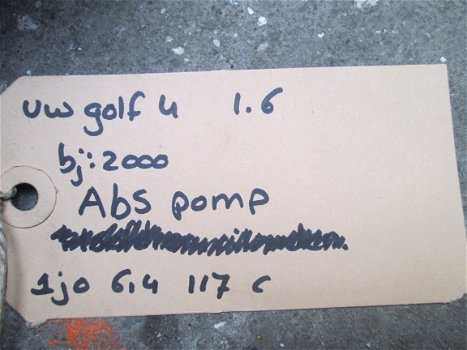 vw golf 4 1.6
bj: 2000
Abs pomp
1jo 614 117 c